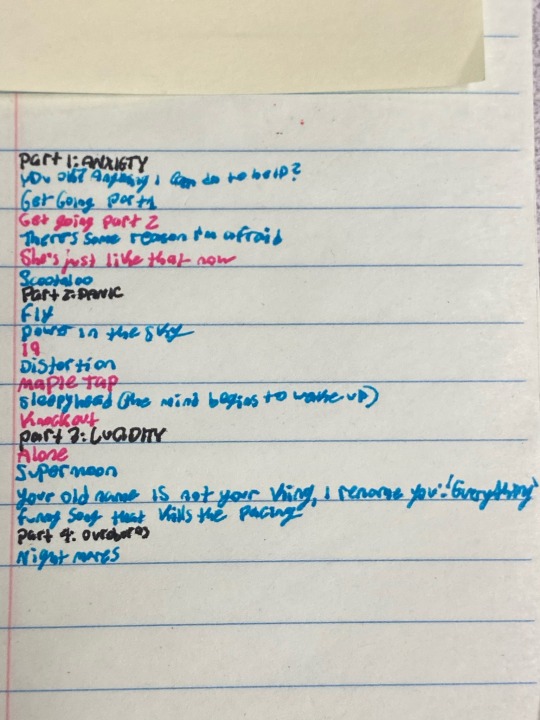 Part 1: ANXIETY
You okay? Anything I can do to help?
Get Going part 1
Get going part 2
There's some reason I'm afraid
She's just like that now
Scootaloo
Part 2: PANIC
Fly
power in the sky
19
Distortion
Maple tap
Sleepyhead (the mind begins to wake up)
Knockout
part 3: LUCIDITY
Alone
Supermoon
Your old name is not your thing, I rename you: "Everything"
Funny song that kills the pacing
part 4: ouroboros
Nightmares